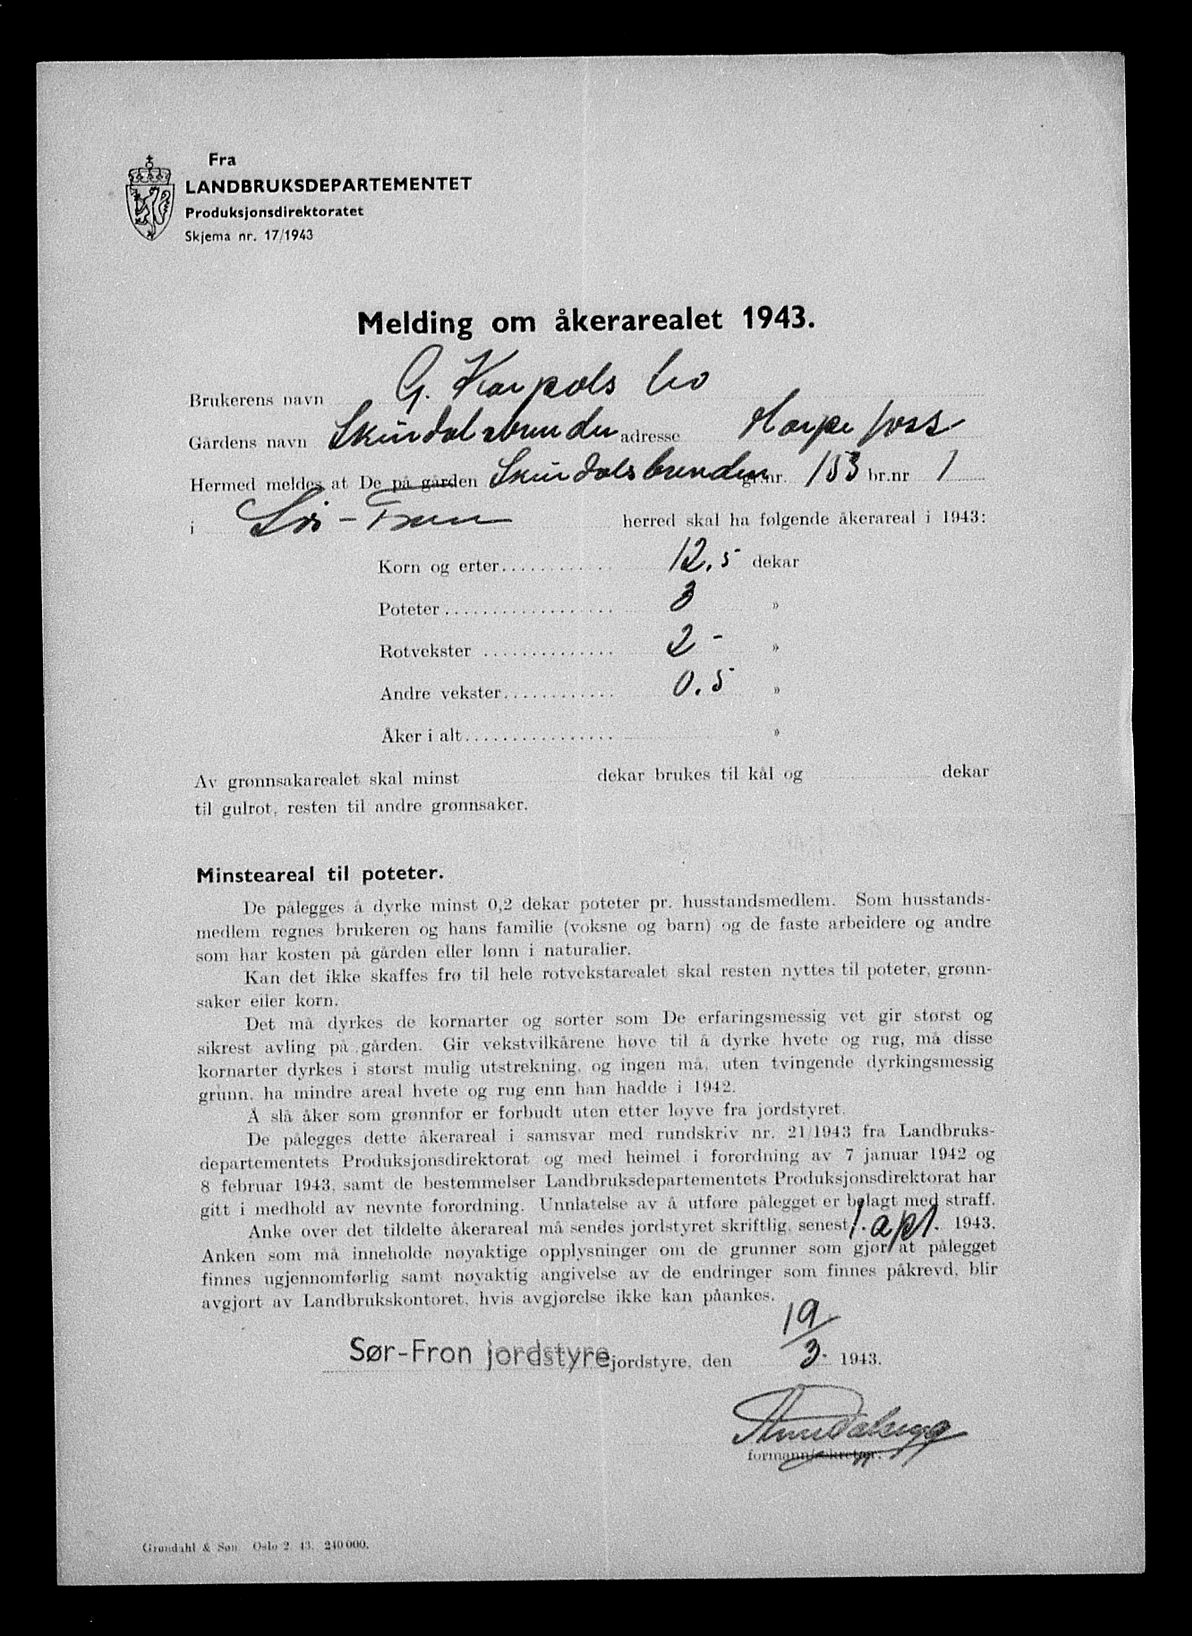 Fra
LANDBRUKSDEPARTEMENTET
Produksjonsdirektoratet
Skjema nr. 17/1943
Melding om åkerarealet 1943.
Brukerens navn G. Karpols
Gårdens navn adresse Harpefoss
Hermed meldes at De på gården Skurdalsbrenden gr.nr. 153 br.nr 1
i Sør-Fron herred skal ha følgende åkerareal i 1943:
Korn og erter............ 12.5 dekar
Poteter.................. 3 »
Rotvekster .............. 2 - »
Andre vekster............ 0.5 »
Åker i alt................ »
Av grønnsakarealet skal minst dekar brukes til kål og dekar
til gulrot, resten til andre grønnsaker.
Minsteareal til poteter.
De pålegges å dyrke minst 0,2 dekar poteter pr. husstandsmedlem. Som husstands-
medlem regnes brukeren og hans familie (voksne og barn) og de faste arbeidere og andre
som har kosten på gården eller lønn i naturalier.
Kan det ikke skaffes frø til hele rotvekstarealet skal resten nyttes til poteter, grønn-
saker eller korn.
Det må dyrkes de kornarter og sorter som De erfaringsmessig vet gir størst og
sikrest avling på gården. Gir vekstvilkårene høve til å dyrke hvete og rug, må disse
kornarter dyrkes i størst mulig utstrekning, og ingen må, uten tvingende dyrkingsmessig
grunn, ha mindre areal hvete og rug enn han hadde i 1942.
Å slå åker som grønnfor er forbudt uten etter løyve fra jordstyret.
De pålegges dette åkerareal i samsvar med rundskriv nr. 21/1943 fra Landbruks-
departementets Produksjonsdirektorat og med heimel i forordning av 7 januar 1942 og
8 februar 1943, samt de bestemmelser Landbruksdepartementets Produksjonsdirektorat har
gitt i medhold av nevnte forordning. Unnlatelse av å utføre pålegget er belagt med straff.
Anke over det tildelte åkerareal må sendes jordstyret skriftlig, senest 1. apr. 1943.
Anken som må inneholde nøyaktige opplysninger om de grunner som gjør at pålegget
finnes ugjennomførlig samt nøyaktig angivelse av de endringer som finnes påkrevd, blir
avgjort av Landbrukskontoret, hvis avgjørelse ikke kan påankes.
Sør-Fron jordstyre jordstyre, den 19/3 1943.
formann/sekretær.
Grøndahl & Søn Oslo 2. 43. 240 000.